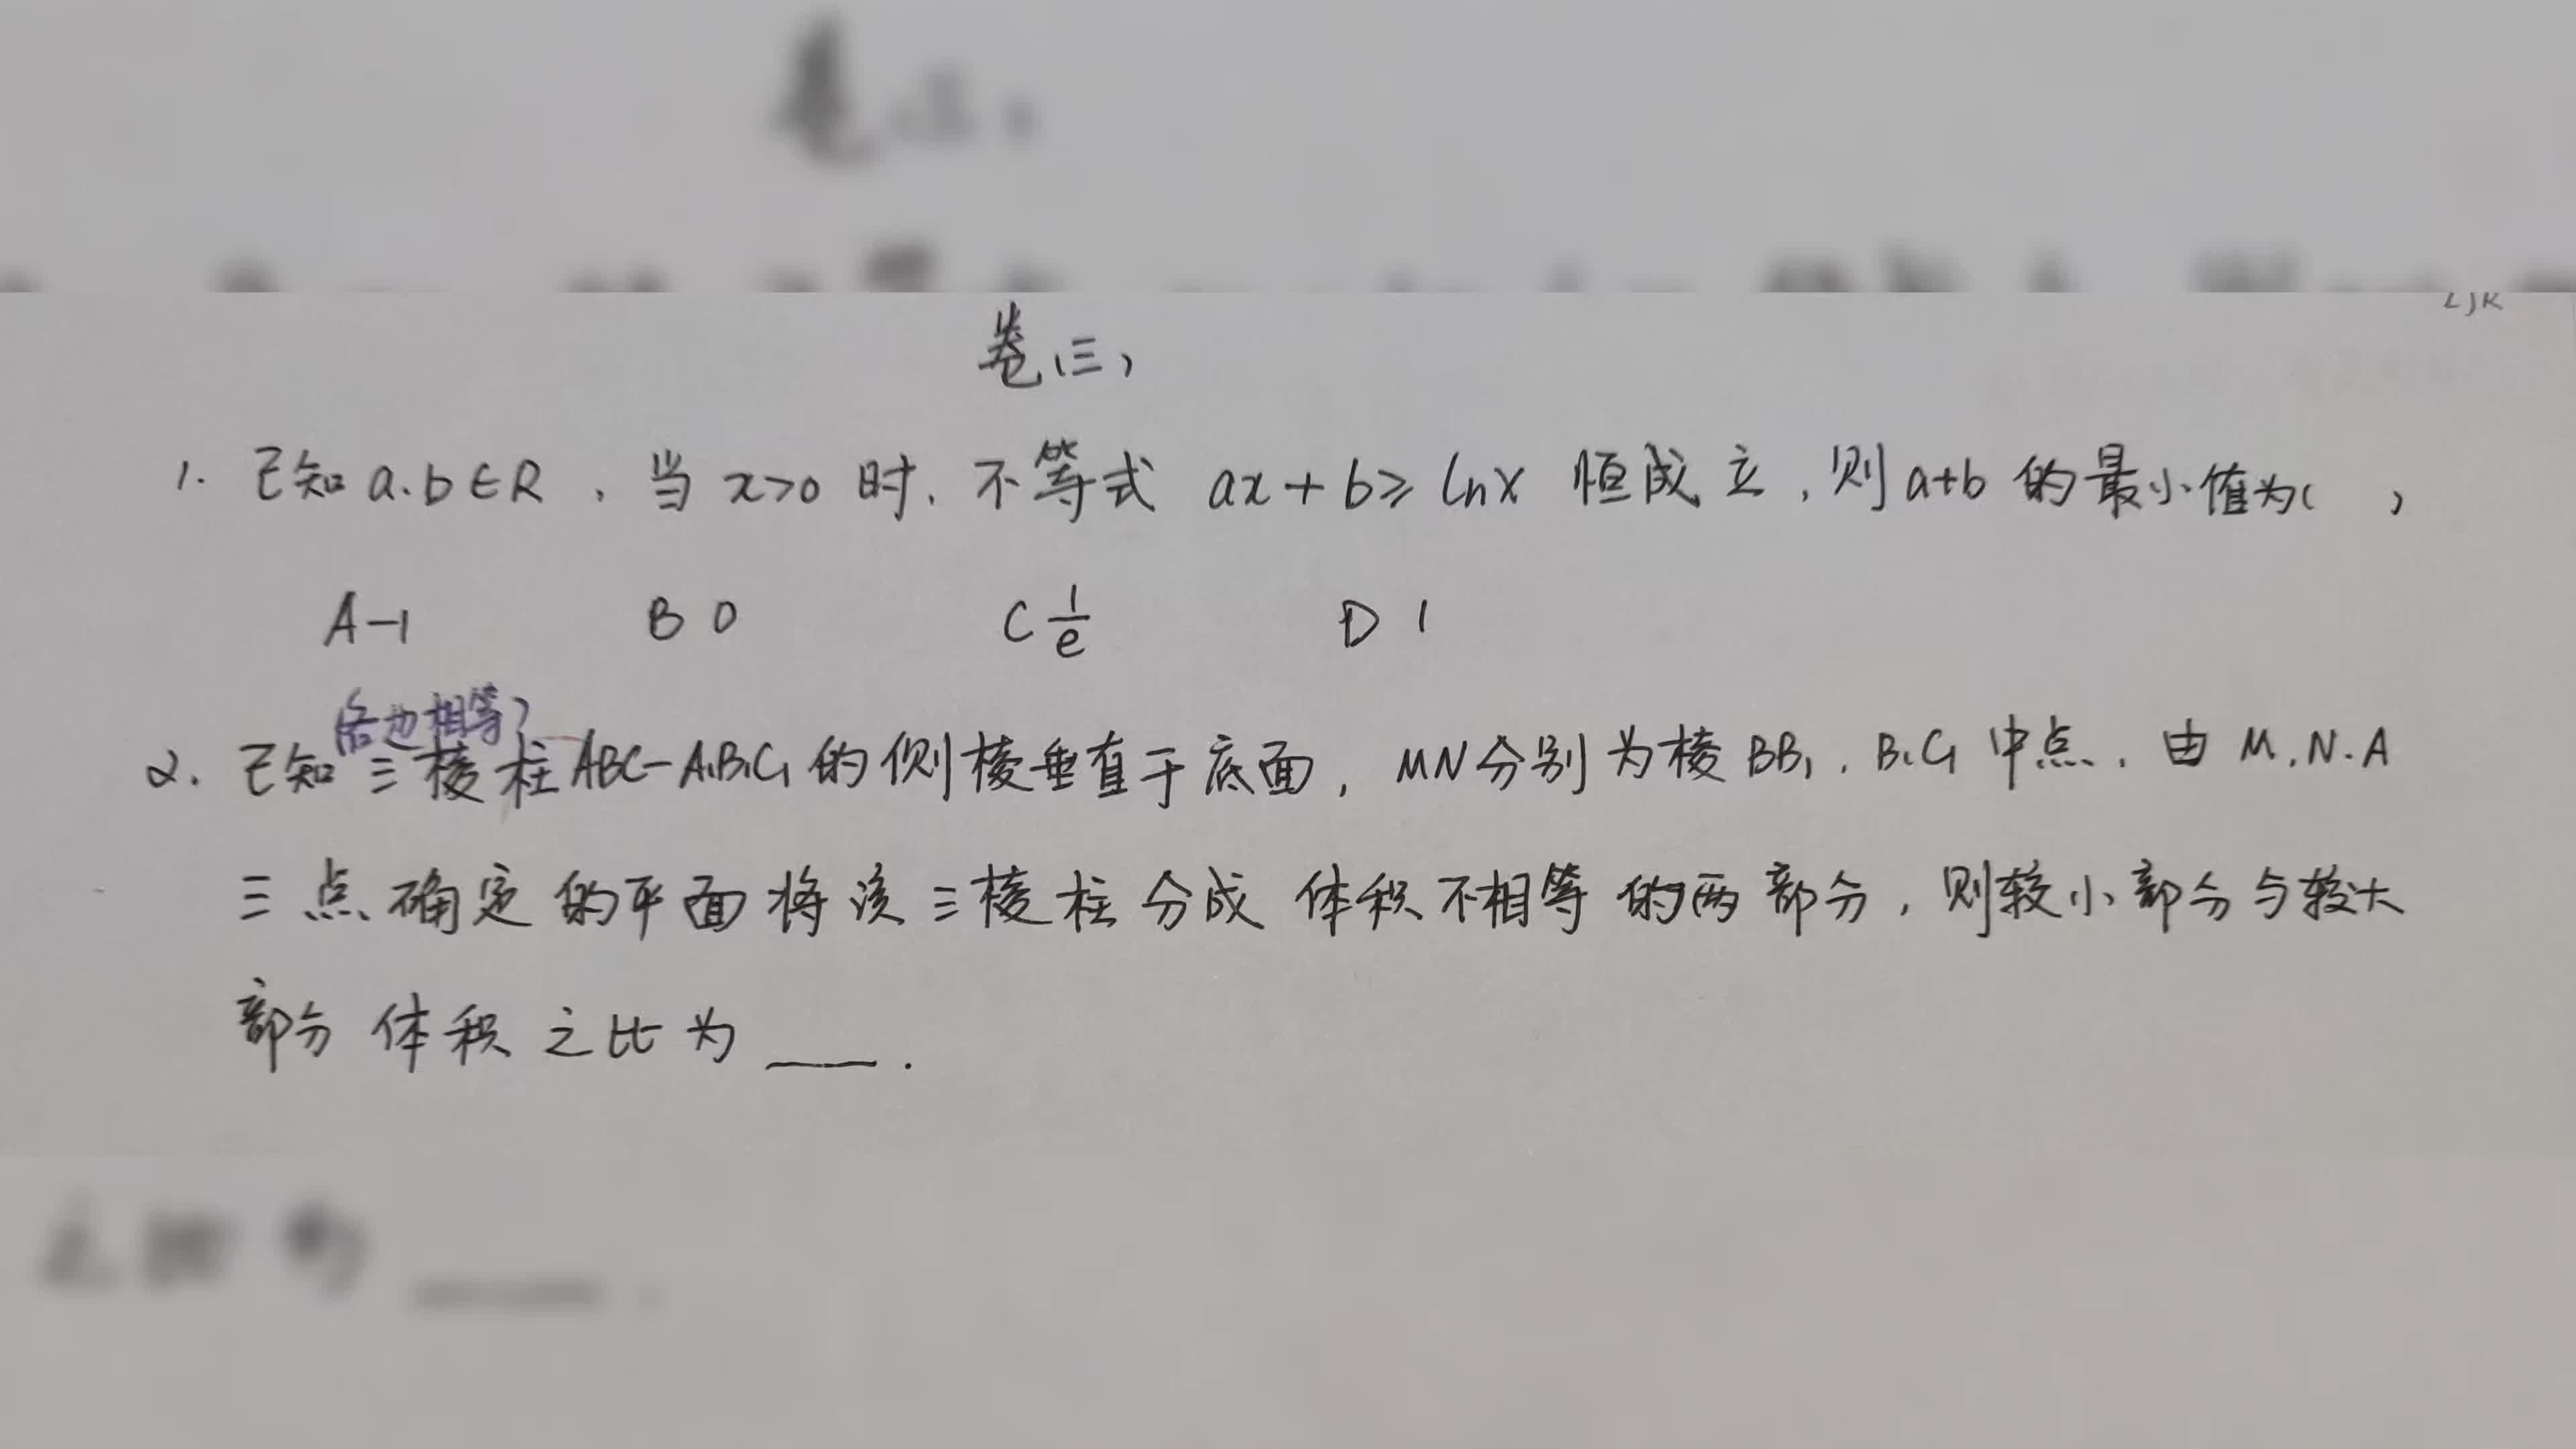 LJR
卷(三)
1. 已知 a.b∈R , 当 x>0 时, 不等式 ax+b≥lnx 恒成立, 则a+b 的最小值为( )
A -1 B 0 C 1/e D 1
(各边相等)
2. 已知三棱柱ABC-A₁B₁C₁的侧棱垂直于底面, MN分别为棱BB₁, B₁C₁中点, 由 M.N.A
三点确定的平面将该三棱柱分成体积不相等的两部分, 则较小部分与较大
部分体积之比为 ___ .